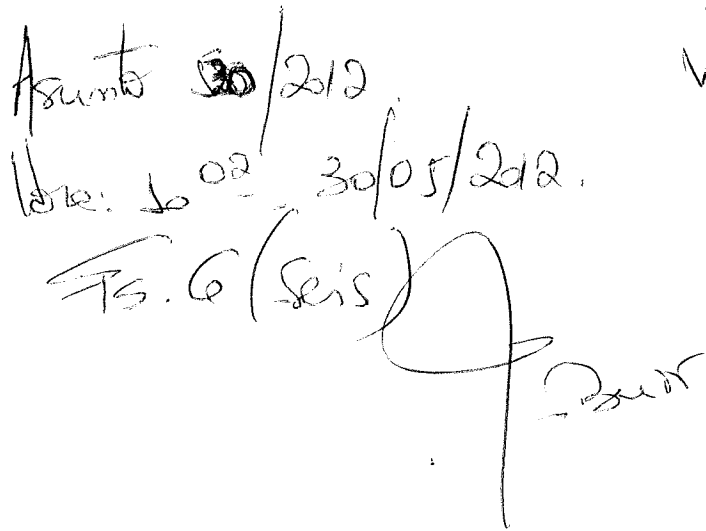 Asunto 530/2012.
Hora: 10 02 - 30/05/2012.
Fs. 6 (Seis)